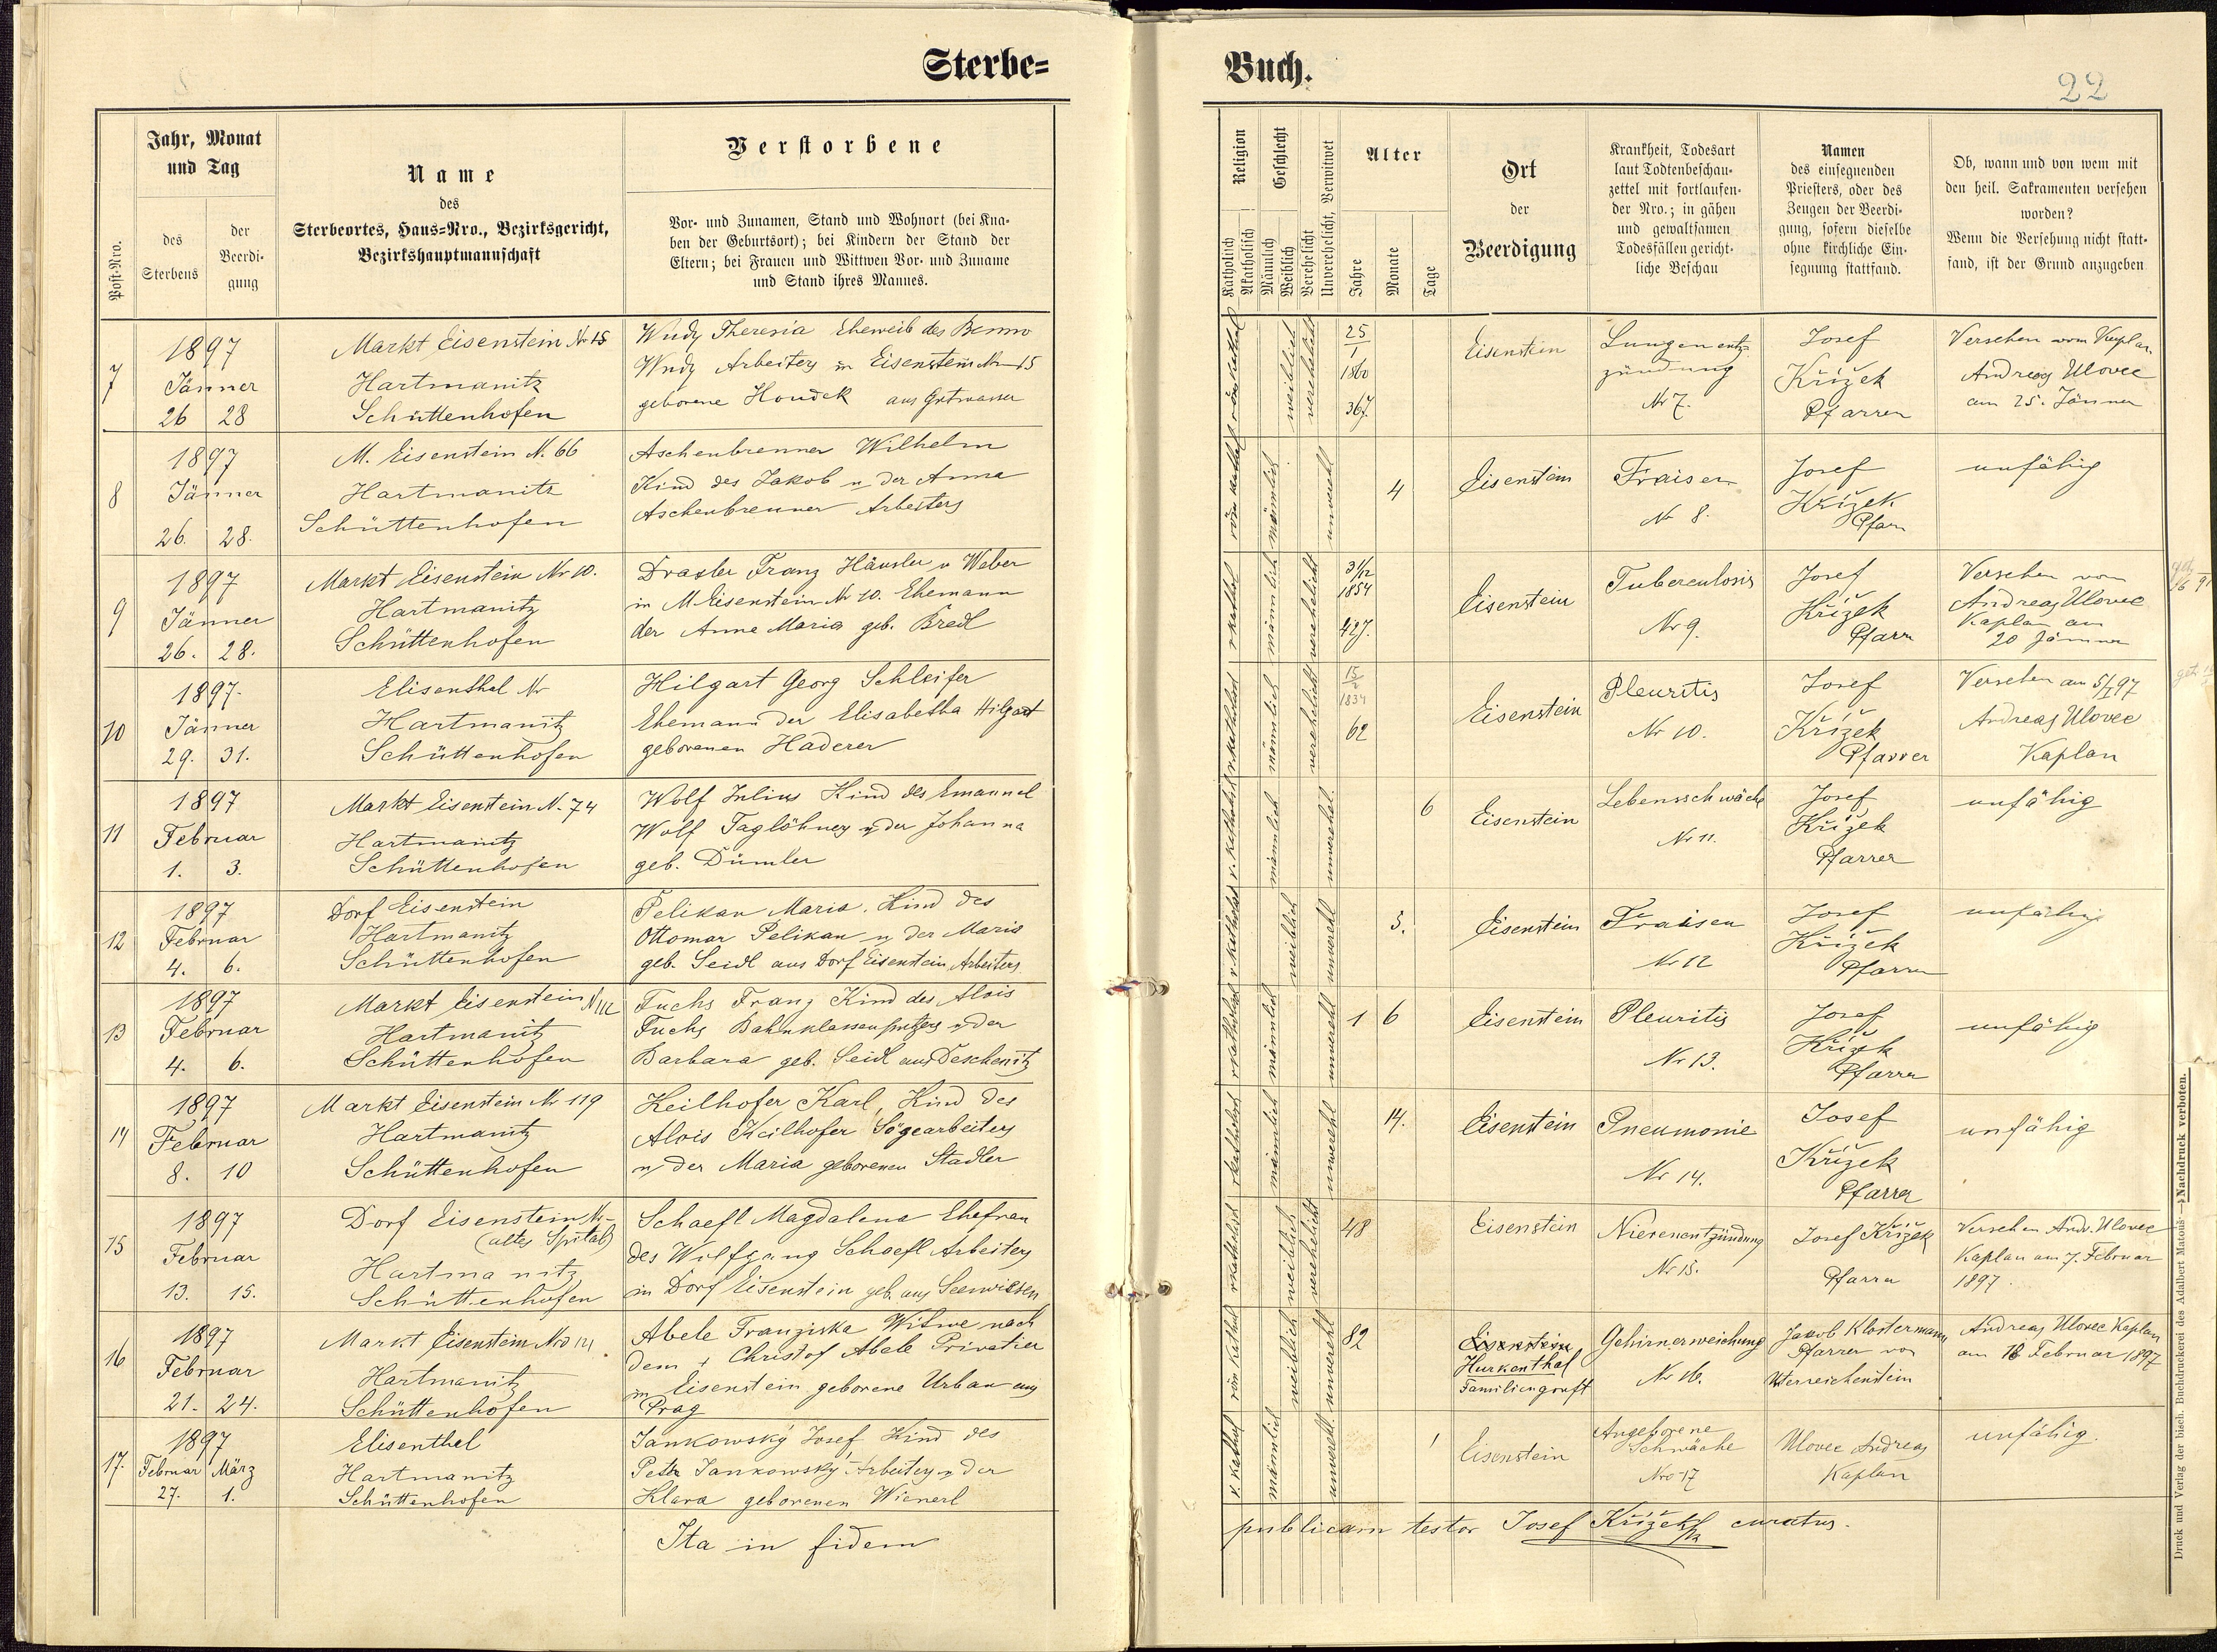 Sterbe=
Jahr, Monat
und Tag
Name
des
Sterbeortes, Haus=Nro., Bezirksgericht,
Bezirkshauptmannschaft
Verstorbene
Vor- und Zunamen, Stand und Wohnort (bei Kna-
ben der Geburtsort); bei Kindern der Stand der
Eltern; bei Frauen und Wittwen Vor- und Zuname
und Stand ihres Mannes.
Post-Nro.
des
Sterbens
der
Beerdi-
gung
7
1897
Jänner
26 28
Markt Eisenstein Nr 15
Hartmanitz
Schüttenhofen
Wudy Theresia Eheweib des Benno
Wudy Arbeiters in Eisenstein Nr 15
geborene Houdek aus Gutwasser
8
1897
Jänner
26. 28.
M. Eisenstein N. 66
Hartmanitz
Schüttenhofen
Aschenbrenner Wilhelm
Kind des Jakob u der Anna
Aschenbrenner Arbeiters
9
1897
Jänner
26. 28.
Markt Eisenstein Nr 10.
Hartmanitz
Schüttenhofen
Draxler Franz Häusler u Weber
in M Eisenstein Nr 10. Ehemann
der Anna Maria geb. Bredl
10
1897.
Jänner
29. 31.
Elisenthal Nr
Hartmanitz
Schüttenhofen
Hilgart Georg Schleifer
Ehemann der Elisabetha Hilgart
geborenen Haderer
11
1897
Februar
1. 3.
Markt Eisenstein N. 74
Hartmanitz
Schüttenhofen
Wolf Julius Kind des Emanuel
Wolf Taglöhners u der Johanna
geb. Dümler
12
1897
Februar
4. 6.
Dorf Eisenstein
Hartmanitz
Schüttenhofen
Pelikan Maria. Kind des
Ottomar Pelikan u der Maria
geb. Seidl aus Dorf Eisenstein, Arbeiters
13
1897
Februar
4. 6.
Markt Eisenstein N 112
Hartmanitz
Schüttenhofen
Fuchs Franz Kind des Alois
Fuchs Bahnklassenputzers u der
Barbara geb. Seidl aus Deschenitz
14
1897
Februar
8. 10
Markt Eisenstein Nr 119
Hartmanitz
Schüttenhofen
Keilhofer Karl, Kind des
Alois Keilhofer Sägearbeiters
u der Maria geborenen Stadler
15
1897
Februar
13. 15.
Dorf Eisenstein Nr-
(altes Spital)
Hartmanitz
Schüttenhofen
Schaefl Magdalena Ehefrau
des Wolfgang Schaefl Arbeiters
in Dorf Eisenstein geb. aus Seewiesen
16
1897
Februar
21. 24.
Markt Eisenstein Nro 121
Hartmanitz
Schüttenhofen
Abele Franziska Witwe nach
dem + Christof Abele Privatier
in Eisenstein geborene Urban aus
Prag
17.
1897
Februar März
27. 1.
Elisenthal
Hartmanitz
Schüttenhofen
Jankowský Josef, Kind des
Peter Jankowský, Arbeiters u der
Klara geborenen Wienerl
Ita in fidem
Buch.
22
Religion
Geschlecht
Katholisch
Akatholisch
Männlich
Weiblich
Verehelicht
Unverehelicht, Verwitwet
Alter
Jahre
Monate
Tage
Ort
der
Beerdigung
Krankheit, Todesart
laut Todtenbeschau-
zettel mit fortlaufen-
der Nro.; in gähen
und gewaltsamen
Todesfällen gericht-
liche Beschau
Namen
des einsegnenden
Priesters, oder des
Zeugen der Beerdi-
gung, sofern dieselbe
ohne kirchliche Ein-
segnung stattfand.
Ob, wann und von wem mit
den heil. Sakramenten versehen
worden?
Wenn die Versehung nicht statt-
fand, ist der Grund anzugeben
röm kathol
weiblich
verehelicht
25
1
1860
36 J.
Eisenstein
Lungenentz=
zündung
Nr 7.
Josef
Křížek
Pfarrer
Versehen vom Kaplan
Andreas Ulovec
am 25. Jänner
röm kathol
männlich
unverehl
4
Eisenstein
Fraisen
Nr 8.
Josef
Křížek
Pfarr
unfähig
rkathol
männlich
verehelicht
31/12
1854
42 J.
Eisenstein
Tuberculosis
Nr 9.
Josef
Křížek
Pfarr
Versehen vom
Andreas Ulovec
Kaplan am
20 Jänner
rkatholisch
männlich
verehelicht
15
2
1834
62
Eisenstein
Pleuritis
Nr 10.
Josef
Křížek
Pfarrer
Versehen am 5/I 97
Andreas Ulovec
Kaplan
r. katholisch
männlich
unverehel.
6
Eisenstein
Lebensschwäche
Nr 11.
Josef
Křížek
Pfarrer
unfähig
r katholisch
weiblich
unverehl
3.
Eisenstein
Fraisen
Nr 12
Josef
Křížek
Pfarrer
unfähig
rkatholisch
männlich
unverehl
1 6
Eisenstein
Pleuritis
Nr 13.
Josef
Křížek
Pfarrer
unfähig
rkatholisch
männlich
unverehl
14.
Eisenstein
Pneumonie
Nr 14.
Josef
Křížek
Pfarrer
unfähig
rkatholisch
weiblich
verehelicht
48
Eisenstein
Nierenentzündung
Nr 15.
Josef Křížek
Pfarrer
Versehen Andr. Ulovec
Kaplan am 7. Februar
1897.
röm kathol
weiblich
unverehl
82
Eisenstein
Hurkenthal
Familiengruft
Gehirnerweichung
Nr 16.
Jakob Klostermann
Pfarrer von
Unterreichenstein
Andreas Ulovec Kaplan
am 18 Februar 1897
r. kathol
männlich
unverehl.
1
Eisenstein
Angeborene
Schwäche
Nro 17
Ulovec Andreas
Kaplan
unfähig.
publicam testor Josef Křížek curatus.
Druck und Verlag der bisch. Buchdruckerei des Adalbert Matouš — Nachdruck verboten.